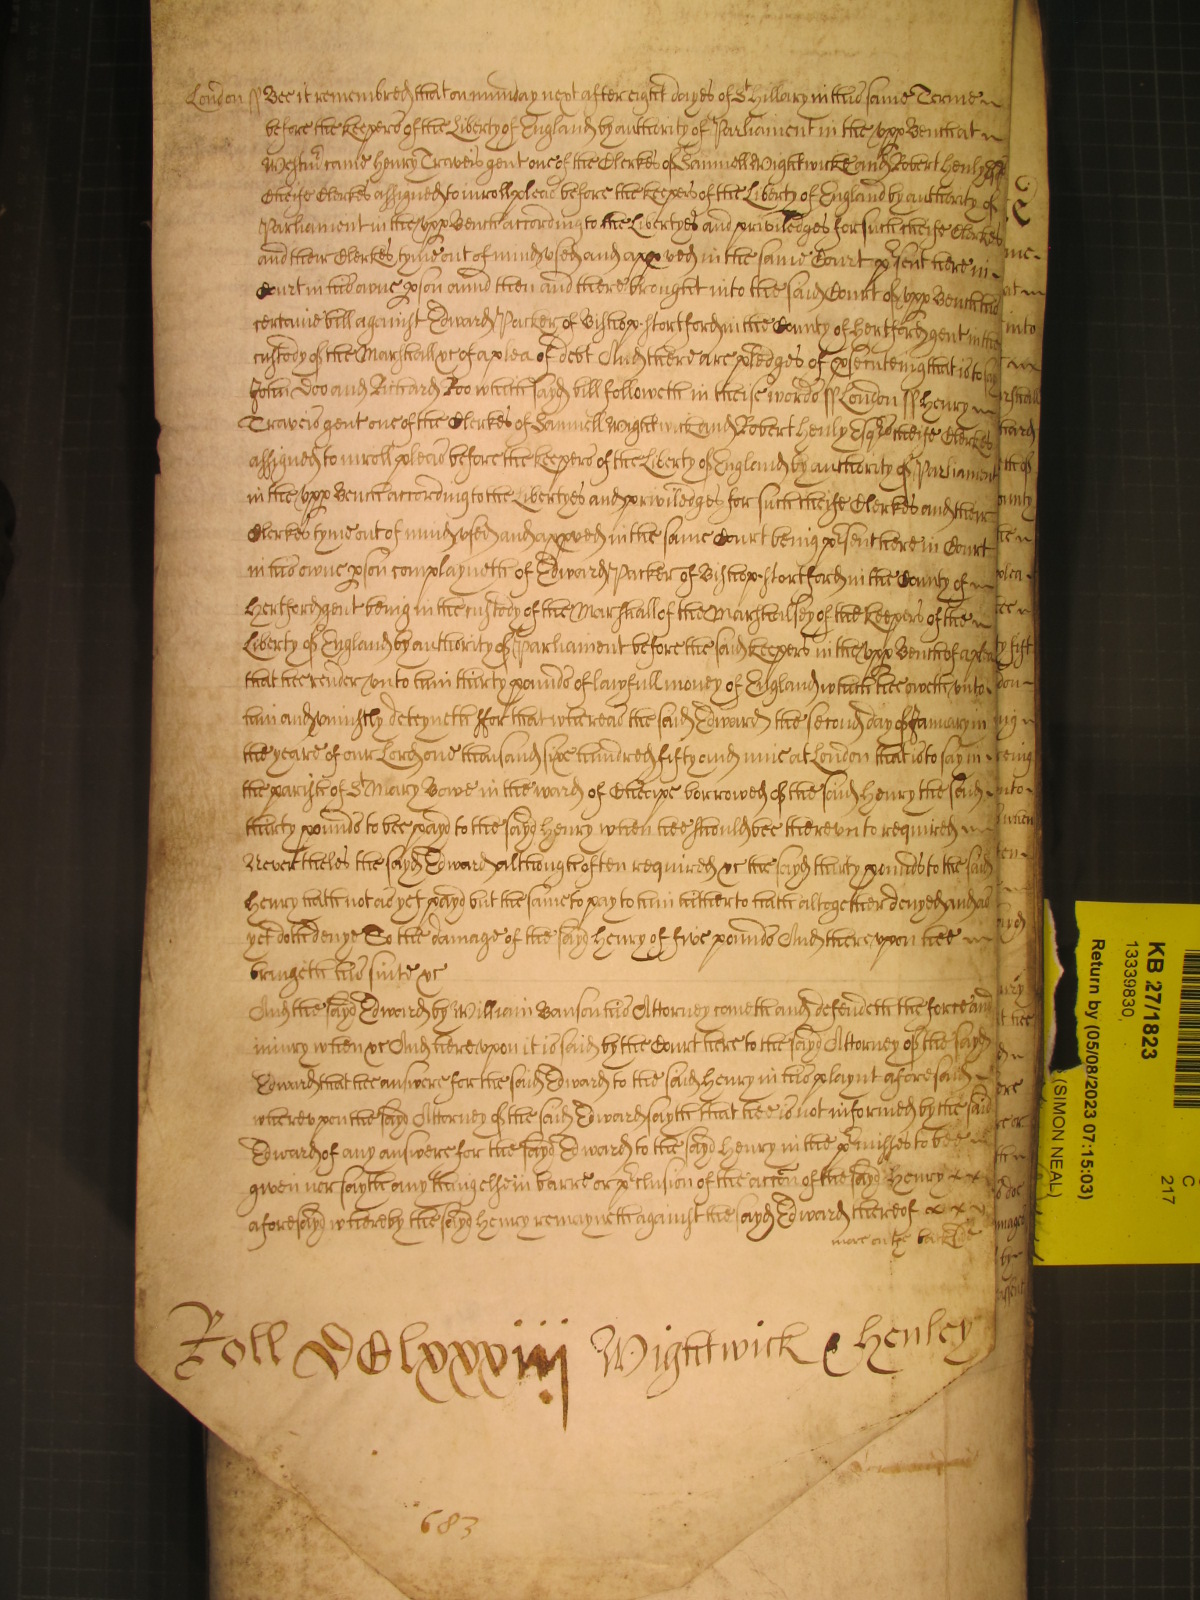 London ss Bee it remembred that on munday next after eight dayes of St Hillary in this same Terme
before the keepers of the Liberty of England by authority of Parliament in the vpp Bench at
Westmr came Henry Travers gent one of the Clerkes of Samuell Wightwicke and Robert Henly Esqrs
Cheife Clerkes assigned to inroll plead before the keepers of the Liberty of England by authority of
Parliament in the vpp Bench according to the Libertyes and priviledges for such cheife Clerkes
and their Clerkes tyme out of mind vsed and appved in the same Court psent here in
Court in his owne pson amd then and there brought into the said Court of vpp Bench his
certaine bill against Edward Packer of Bishop-stortford in the County of Hertford gent in the
custody of the Marshall &c of a plea of debt And there are pledges of psecuteing that is to say
John Doo and Richard Roo which sayd bill followeth in theise words ss London ss Henry
Travers gent one of the Clerkes of Samuell Wightwick and Robert Henly Esqrs cheife Clerkes
assigned to inroll plead before the keepers of the Liberty of England by authority of Parliament
in the vpp Bench according to the Libertyes and priviledges for such cheife Clerkes and their
Clerkes tyme out of mind vsed and appved in the same Court being psent here in Court
in his owne pson complayneth of Edward Packer of Bishop-stortford in the County of
Hertford gent being in the custody of the Marshall of the Marshallsey of the keepers of the
Liberty of England by authority of Parliament before the said keepers in the vpp Bench of a plea
that hee render vnto him thirty pounds of lawfull money of England which hee oweth vnto
him and vniustly deteyneth ffor that whereas the said Edward the second day of January in
the yeare of our Lord one thousand six hundred fifty and nine at London that is to say in
the parish of St Mary Bowe in the ward of Cheepe borrowed of the said Henry the said
thirty pounds to bee payd to the sayd Henry when hee should bee therevnto required
Neverthelesse the sayd Edward although often required &c the sayd thirty pounds to the said
Henry hath not as yet payd but the same to pay to him hitherto hath altogether denyed and as
yet doth denye To the damage of the sayd Henry of five pounds And therevpon hee
bringeth his suite &c
And the sayd Edward by William Banson his Attorney cometh and defendeth the force and
iniury when &c And herevpon it is said by the Court here to the sayd Attorney of the sayd
Edward that hee answere for the said Edward to the said Henry in his playnt aforesaid
wherevpon the sayd Attorney of the said Edward sayth that hee is not informed by the said
Edward of any answere for the sayd Edward to the sayd Henry in the pmisses to bee
given nor sayth any thing else in barre or pclusion of the accon of the sayd Henry
aforesayd whereby the sayd Henry remayneth against the sayd Edward thereof
more on the backside
Roll DClxxxiij Wightwick & Henley
683
KB 27/1823
13339830,
Return by (05/08/2023 07:15:03)
(SIMON NEAL)
C
217